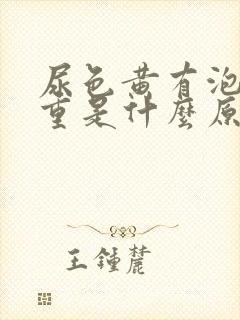 尿色黄有泡
重是什麼原
王鍾麓